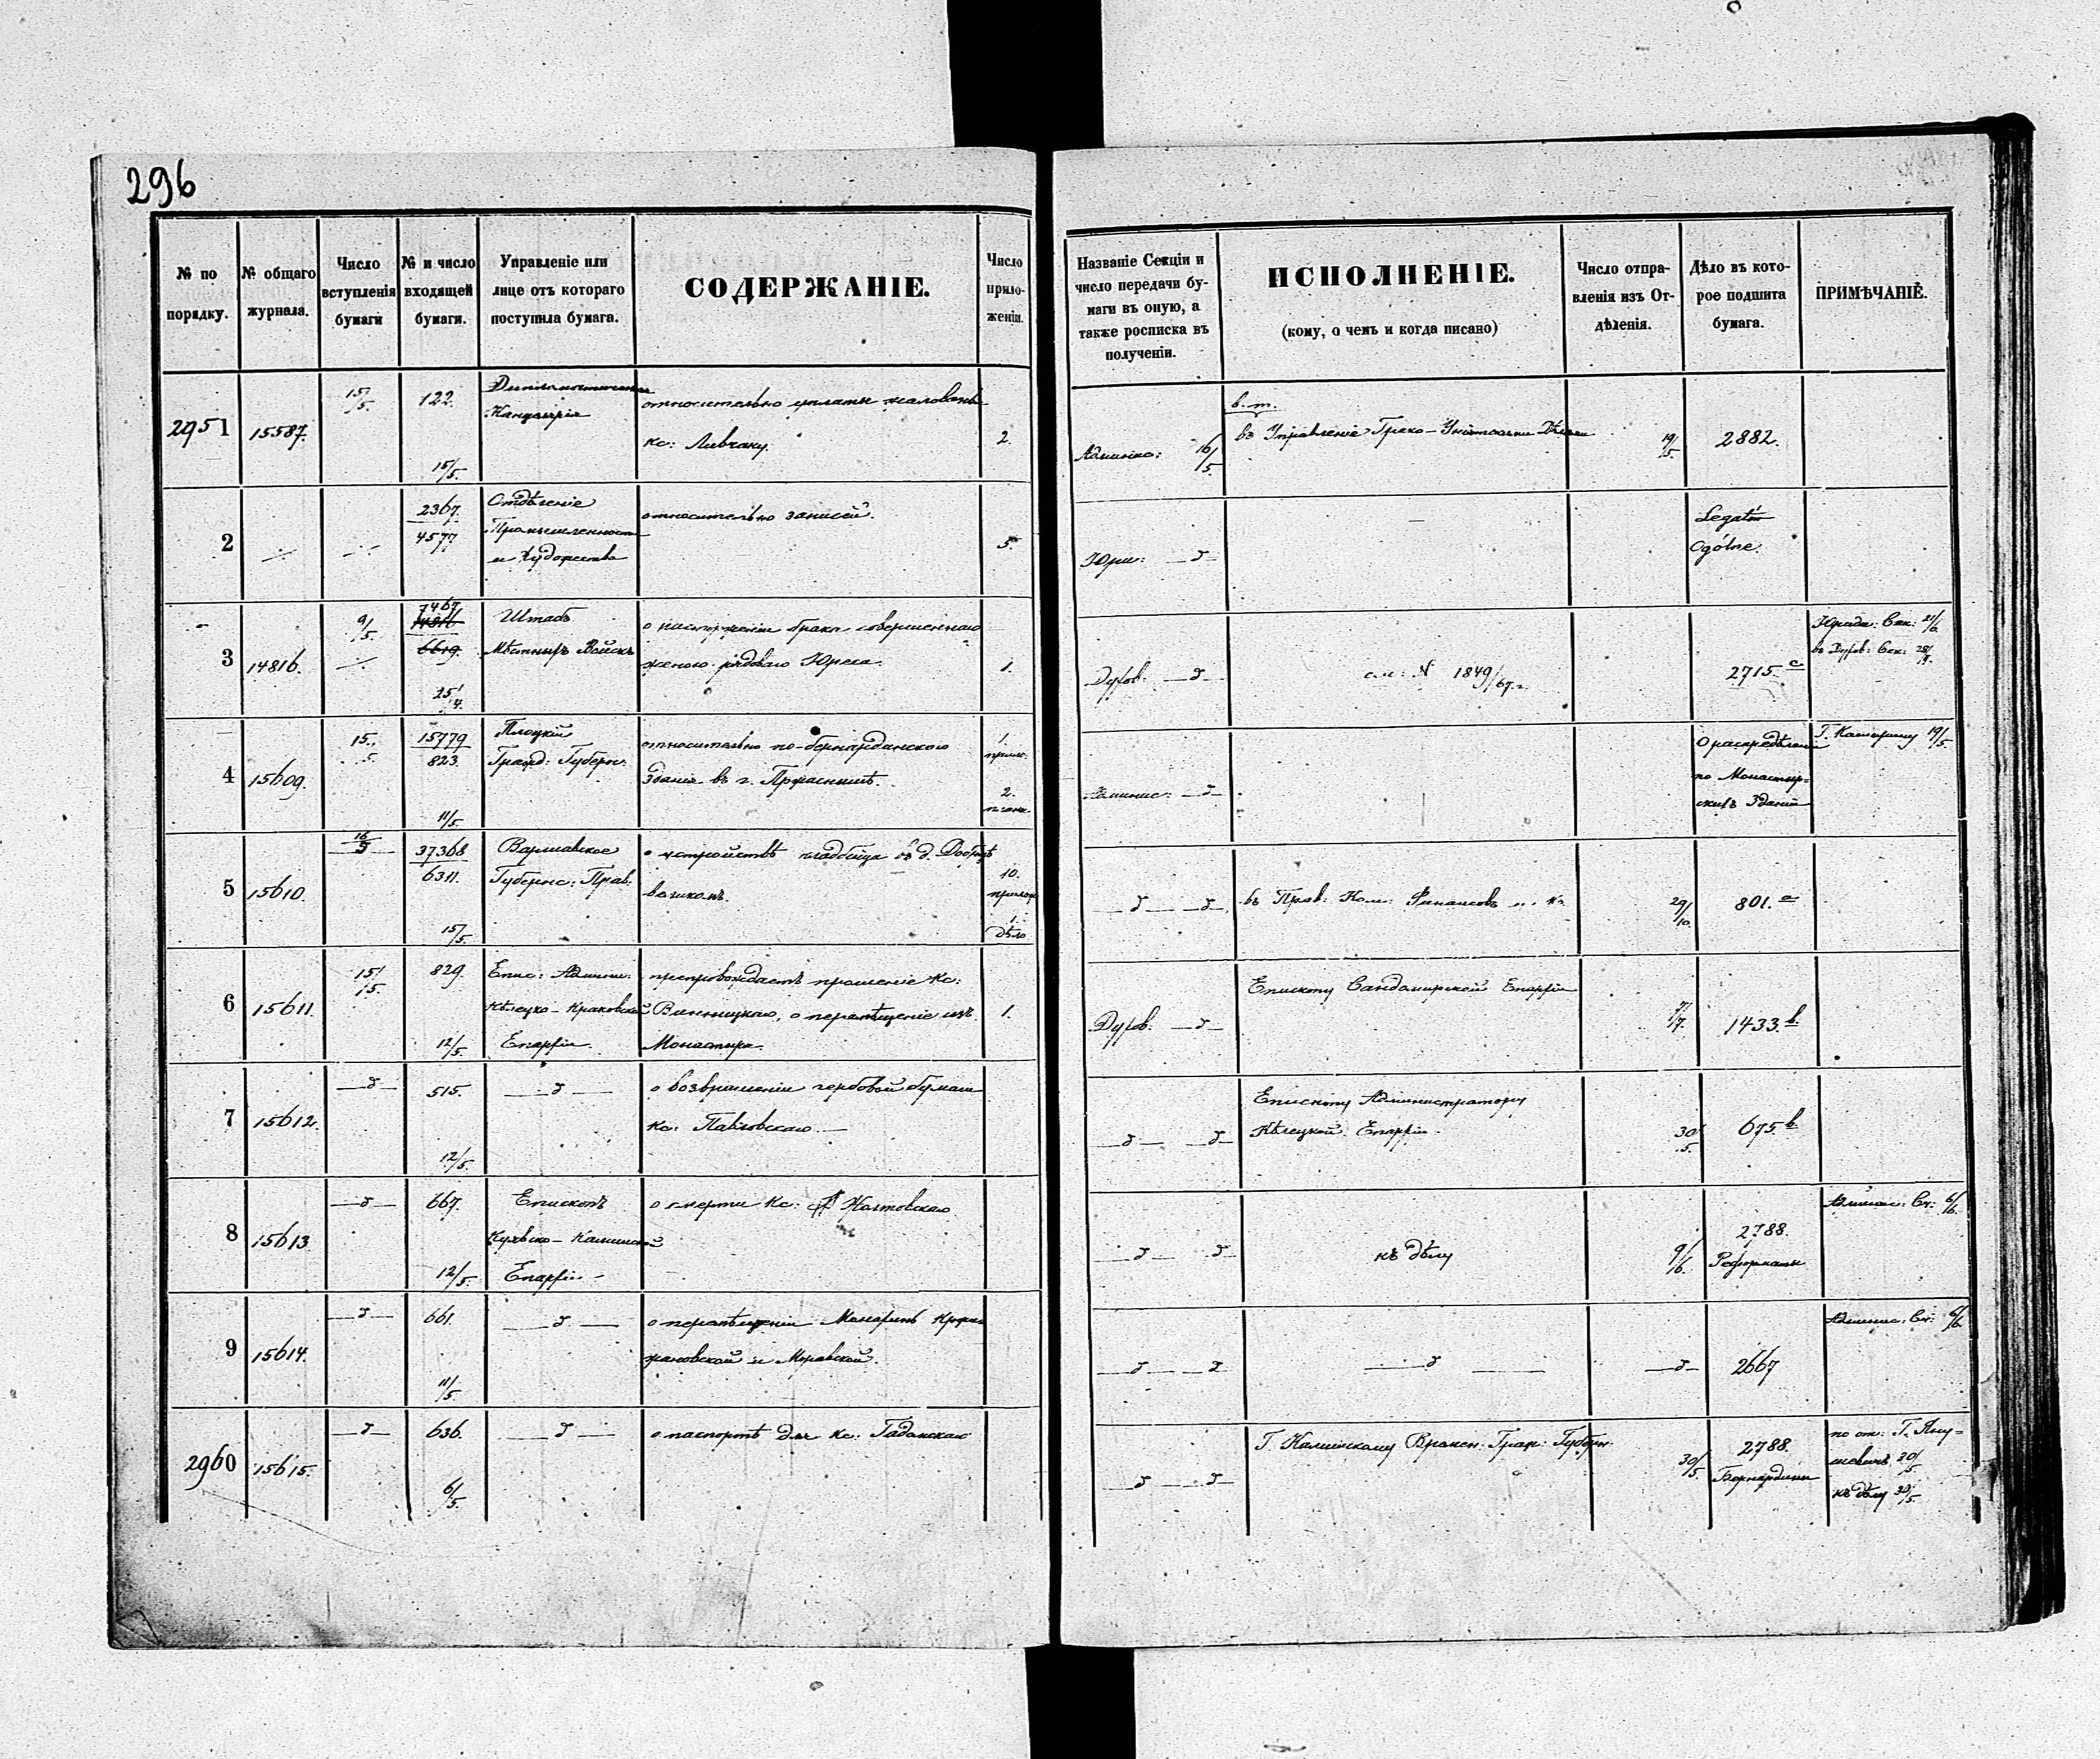 296
№ по порядку.
№ общаго журнала.
Число вступленія бумаги
№ и число входящей бумаги.
Управленіе или лице отъ котораго поступила бумага.
СОДЕРЖАНІЕ.
Число приложеніи.
Названіе Секціи и число передачи бумаги въ оную, а также росписка въ полученіи.
ИСПОЛНЕНІЕ.
(кому, о чемъ и когда писано)
Число отправленія изъ Отдѣленія.
Дѣло въ которое подшита бумага.
ПРИМѢЧАНІЕ.
2951
15587.
15/5.
122.
15/5.
Дипломатическая
Канцелярія
относительно уплаты жалованья
кс: Ливчаку.
2.
16/5
в. т.
въ Управленіе Греко-Уніатскими Дѣлами
19/5.
2882.
2
2367.
4577
Отдѣленіе
Промышленности
и Художествъ
относительно записей.
5.
Юри: — д —
Ogólne.
3
14816.
9/5.
7467.
6619.
25/4.
Штабъ
Мѣстныхъ Войскъ
о расторженіи брака совершеннаго
женою рядоваго Юреса.
1.
Духов: — д —
см: № 1849/67 г.
2715. с
4
15609.
15/5.
15779
823.
11/5.
Плоцкій
Гражд: Губерн:
относительно по-бернардинскаго
зданія въ г. Пржаснышѣ.
1.
прило:
2.
плана.
— д —
О распредѣленіи
по Монастыр-
скихъ Зданій
19/5
5
15610.
16/5
37368
6311.
15/5.
Варшавское
Губернс: Прав:
о устройствѣ кладбища въ д.
10.
прилож
1.
дѣло
— д — — д
въ Прав: Ком: Финансовъ
29/10.
801. а
6
15611.
15/5.
829.
12/5.
Епис: Админи:
Кѣлецко-Краковской
Епархіи.
препровождаетъ прошеніе кс:
Винницкаго, о перемѣщеніе изъ
Монастыря.
1.
Духов: — д —
Епископу Сандомирской Епархіи
7/7.
1433. в
7
15612.
— д —
515.
12/5.
— д —
о возвращеніи гербовой бумаги
кс: Павловскаго. —
— д — — д —
Епископу Администратору
Кѣлецкой Епархіи.
30/5.
675. в
8
15613.
— д —
667.
12/5.
Епископъ
Куявско-Калишской
Епархіи —
о смерти кс: Жолтовскаго
— д — — д
къ дѣлу
9/6.
2788.
Реформаты
6/6.
9
15614.
— д —
661.
11/5
— д —
о перемѣщеніи Монахинь
жановской и Моравской.
— д — — д
— д —
— д —
2667
6/6
2960
15615.
— д —
636.
6/5.
— д —
о паспортѣ для кс: Гадомскаго
— д — — д
Г. Калишскому Времен: Граж: Губерн:
30/5
2788.
Бернардины
по от: Г. Яну-
шевичъ 30/5
къ дѣлу 30/5.